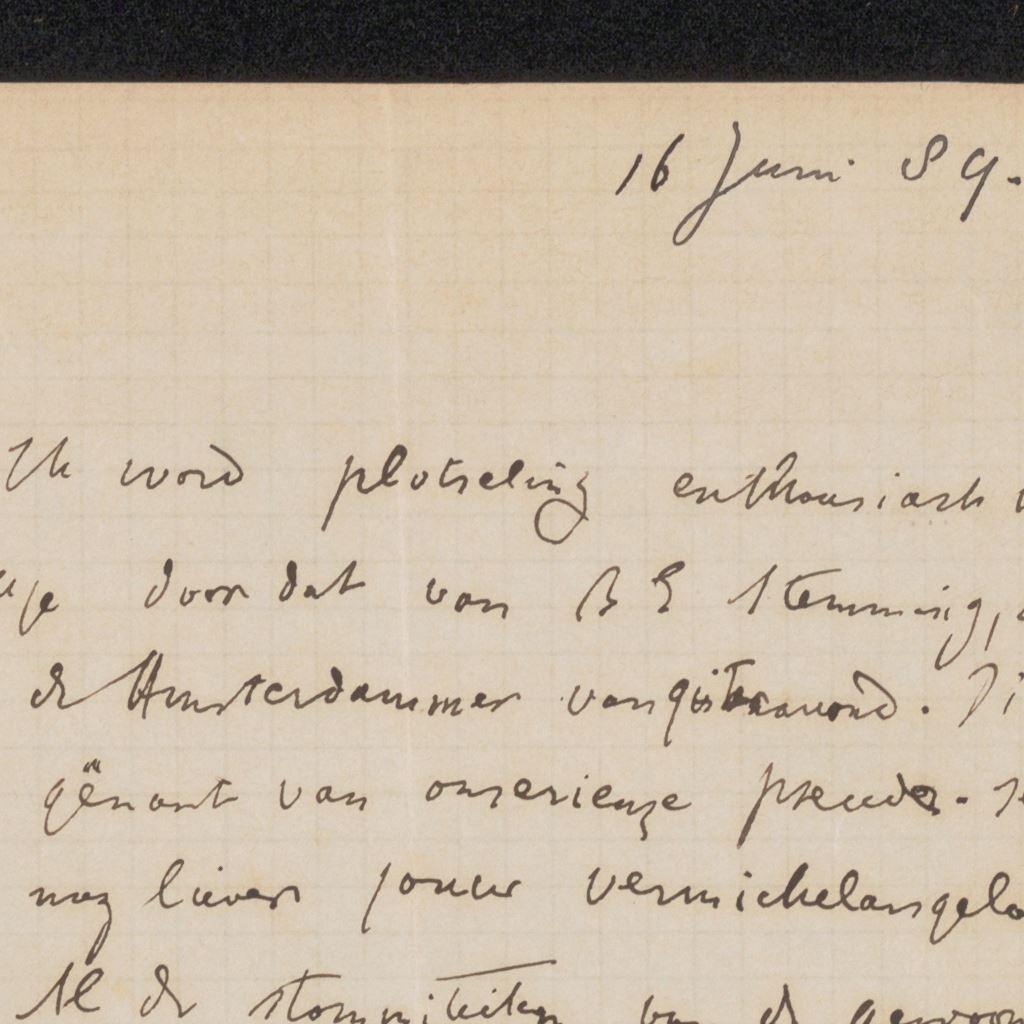 16 Juni 89.
Ik word plotseling enthousiast
doordat van B E Stemming,
de Amsterdammer van gisteravond.
gênant van onserieuze pseudo-
nog liever jouw vermichelangelo
Al de stommiteiten van de gewoon